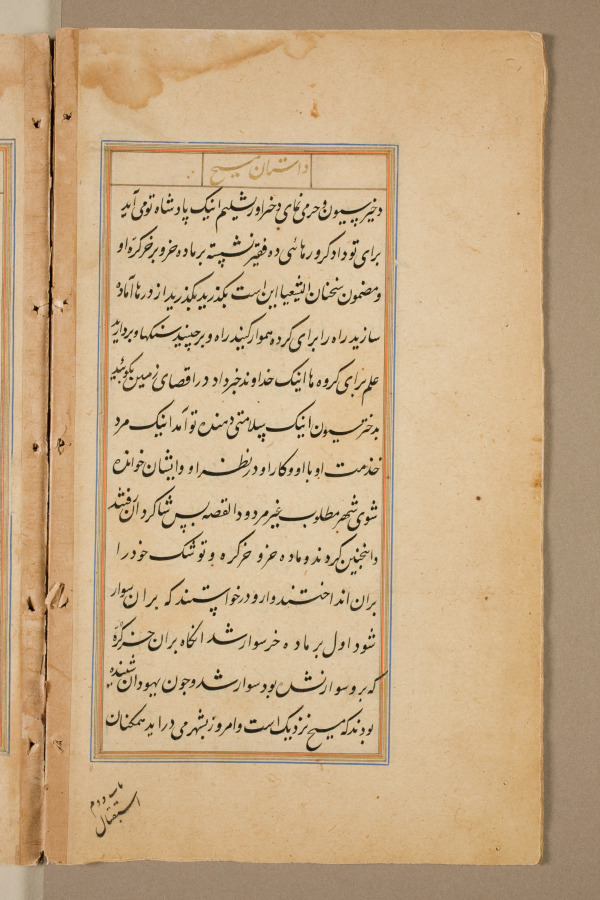 داستان مسیح
دختر سیون و خرمی نمای دختر اورشلیم اینک پادشاه تو می آید
برای تو دادگر و رهائی ده فقیر نشسته بر ماده خر و بر خر کره او
و مضمون سخنان الیشعیا این است بگذرید بگذرید از درها آماده
سازید راه را برای گروه هموار کنید راه و برچینید سنگها و بردارید
علم برای گروه ها اینک خداوند خبر داد در اقصای زمین بگوئید
بدختر سیون اینک سلامتی دهنده تو آمد اینک مرد
خدمت او با او و کار او در نظر او و ایشان خوانده
شوی شهر مطلوب غیر مردود القصه پس شاگردان رفتند
و اینچنین کردند و ماده خر و خر کره و توشک خود را
بران انداختند و ازو درخواستند که بران سوار
شود اول بر ماده خر سوار شد انگاه بران خر کره
که برو سوار نشده بود سوار شد و چون یهودان شنیده
بودند که مسیح نزدیک است و امروز بشهر می دراید همکنان
باب دوم
استقبال